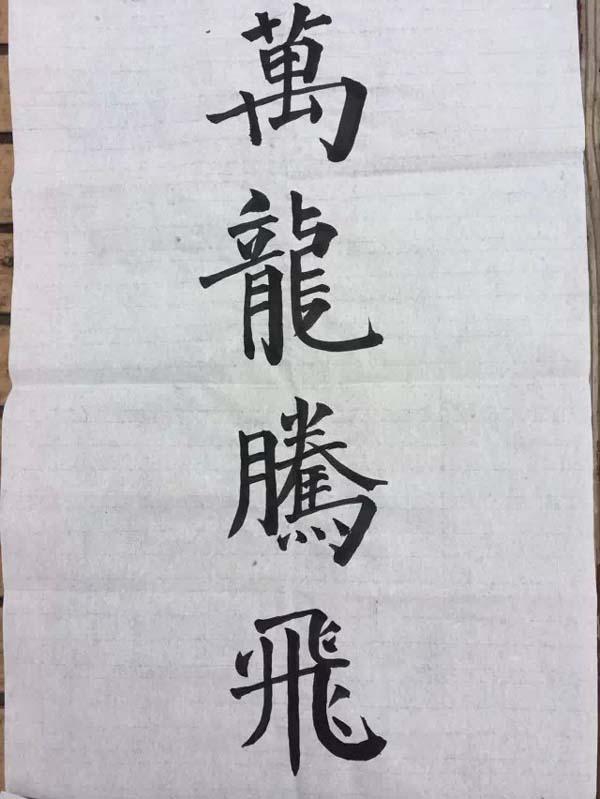 萬龍騰飛